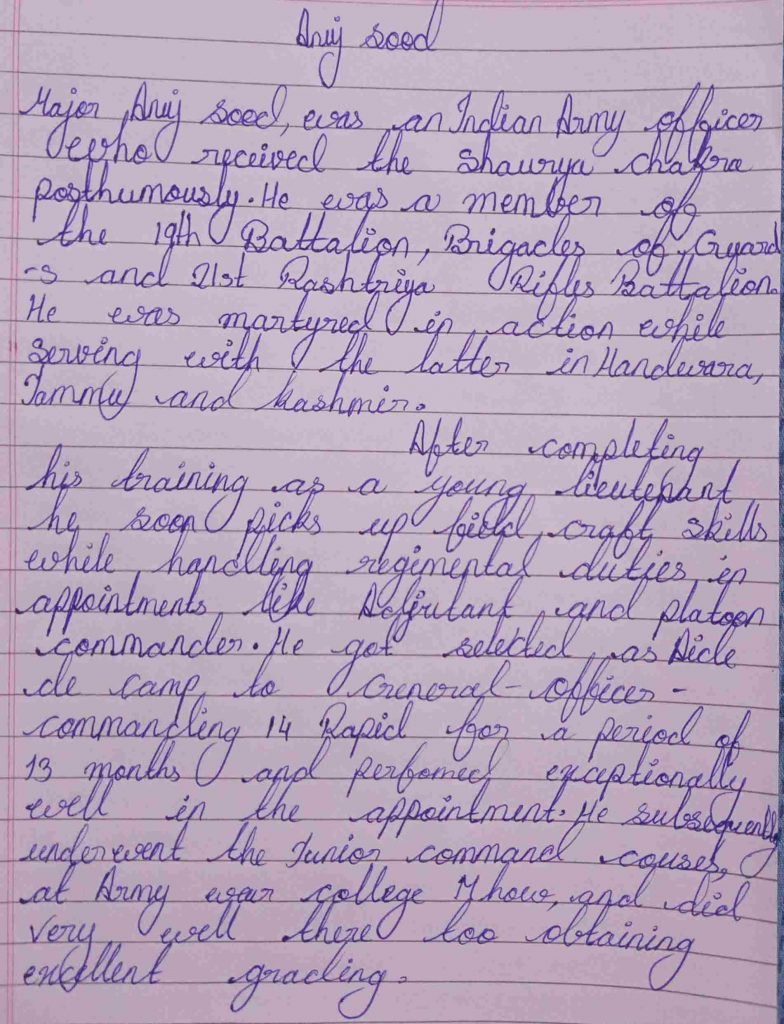 Anuj Sood
Major Anuj Sood, was an Indian Army officer
who received the Shaurya chakra
posthumously. He was a member of
the 19th Battalion, Brigades of Guard
-s and 21st Rashtriya Rifles Battalion.
He was martyred in action while
serving with the latter in Handwara,
Jammu and kashmir.
After completing
his training as a young lieutenant
he soon picks up field craft skills
while handling regimental duties in
appointments like Adjutant and platoon
commander. He got selected as Aide
de camp to General-officer-
commanding 14 Rapid for a period of
13 months and perfomed exceptionally
well in the appointment. He subsequently
underwent the Junior command couses,
at Army war college Mhow, and did
very well there too obtaining
excellent grading.